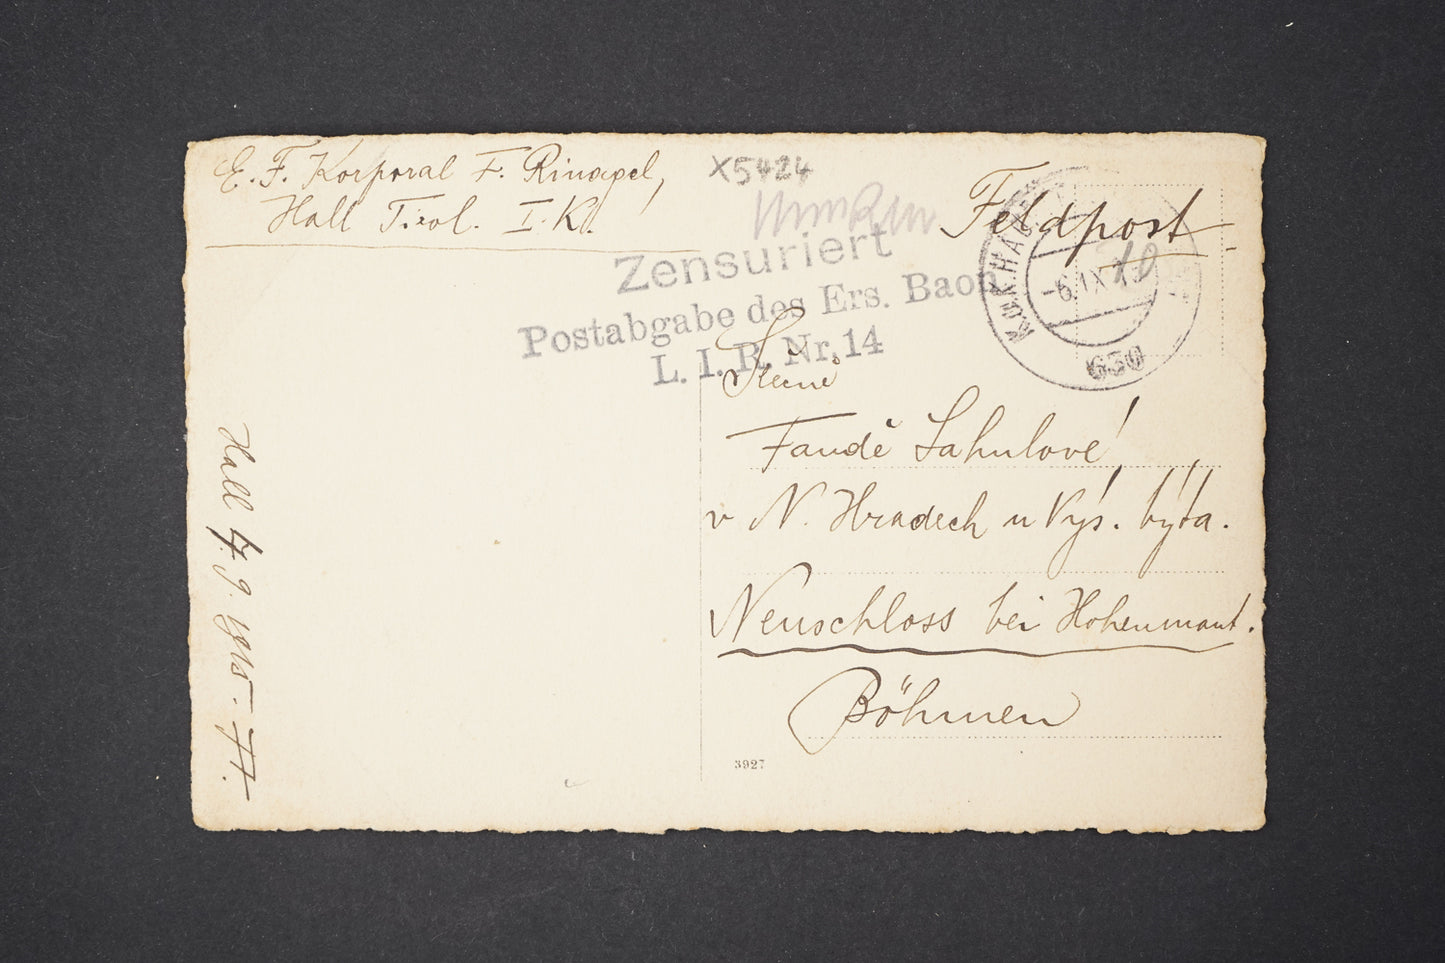 E. F. Korporal F. Rinagel,
Hall Tirol. I. K.
X5424
Feldpost
Zensuriert
Postabgabe des Ers. Baon
L. I. R. Nr. 14
K.u.K. HALL
-6. IX 15
10
630
Fandě Sahulové
v N. Hradech u Vys. Mýta.
Neuschloss bei Hohenmaut.
Böhmen
3927
Hall 4. 9. 1915.